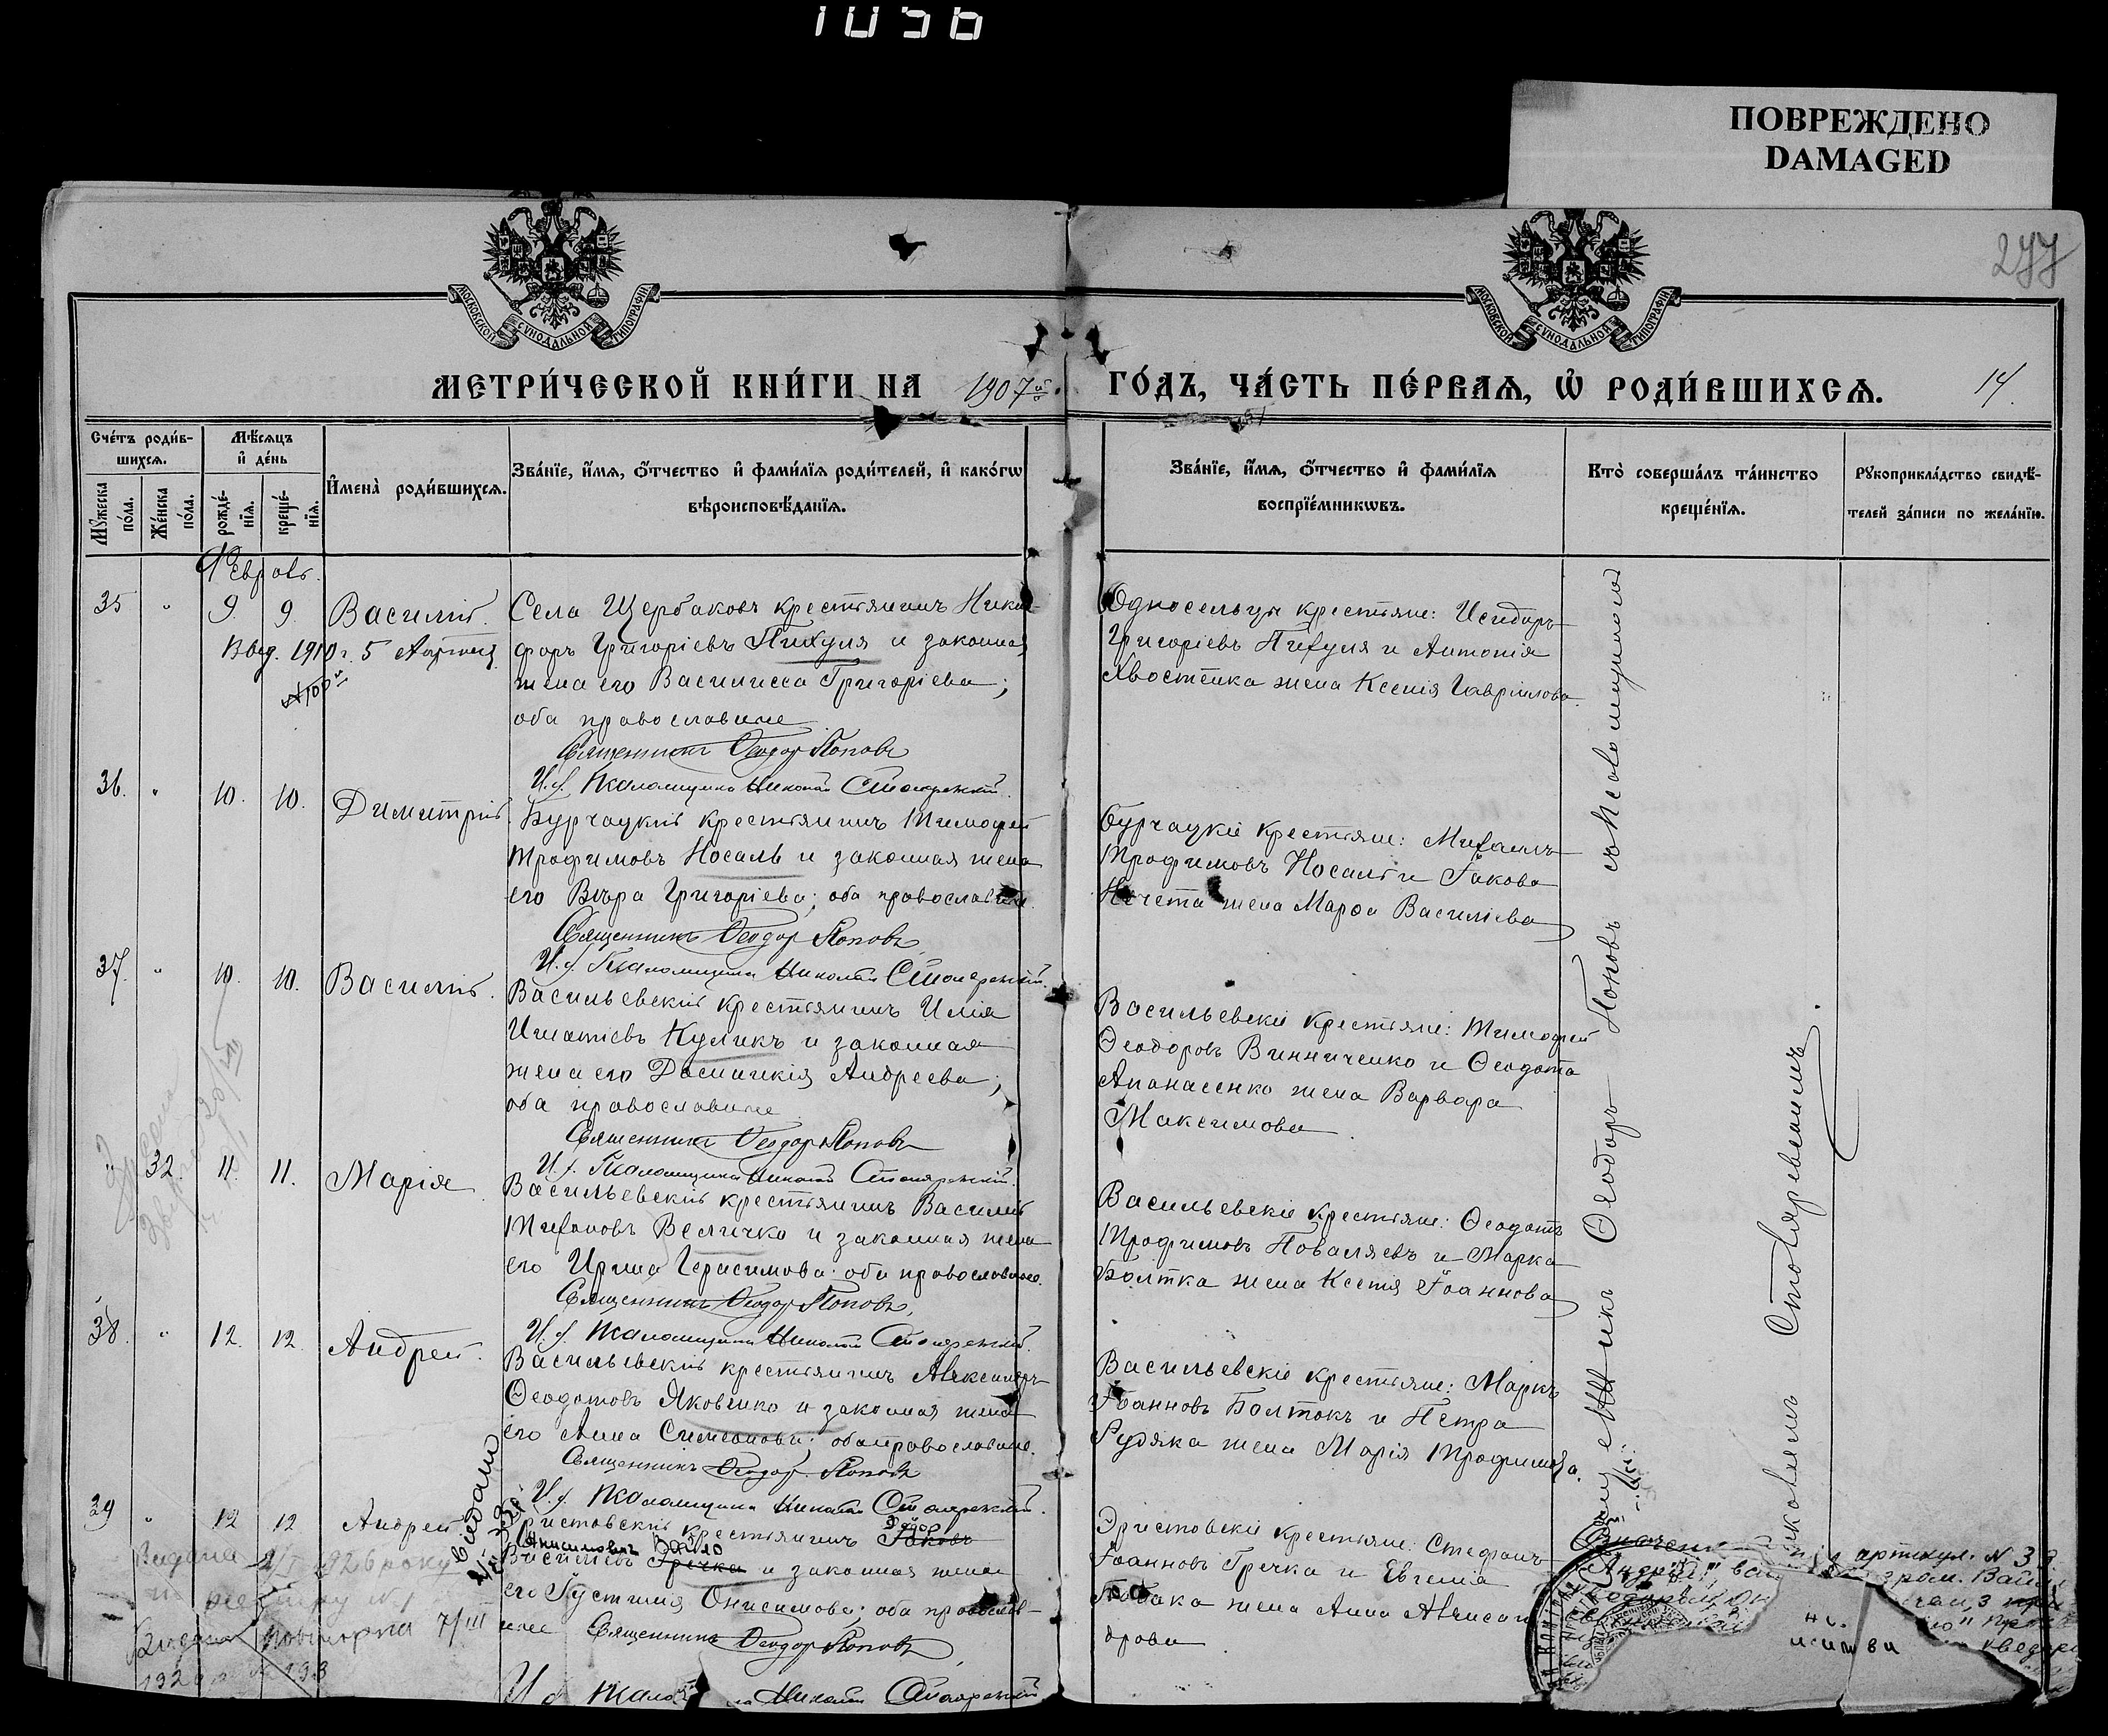 1056
ПОВРЕЖДЕНО
DAMAGED
277
МОСКОВСКОЙ СѴНОДАЛЬНОЙ ТИПОГРАФІИ
МОСКОВСКОЙ СѴНОДАЛЬНОЙ ТИПОГРАФІИ
МЕТРИ́ЧЕСКОЙ КНИ́ГИ НА 1907 й
ГО́ДЪ, ЧА́СТЬ ПЕ́РВАЯ, Ѡ҆ РОДИ́ВШИХСѦ.
14.
Сче́тъ роди́в-
шихсѧ.
Мꙋ́жеска по́ла.
Же́нска по́ла.
Мѣ́сѧцъ
и҆ де́нь
рожде́-
нїѧ.
креще́-
нїѧ.
И҆мена̀ роди́вшихсѧ.
Зва́нїе, и҆́мѧ, ѻ҆́тчество и҆ фами́лїѧ роди́телей, и҆ како́гѡ
вѣроисповѣ́данїѧ.
Зва́нїе, и҆́мѧ, ѻ҆́тчество и҆ фами́лїѧ
воспрїе́мникѡвъ.
Кто̀ соверша́лъ та́инство
креще́нїѧ.
Рꙋкоприкла́дство свидѣ́-
телей за́писи по жела́нїю.
Февраль.
35 " 9. 9. Василій.
Села Щербаковъ крестьянинъ Ники-
форъ Григоріевъ Пихуля и законная
жена его Василисса Григоріева;
оба православные
Священникъ Ѳеодор Поповъ
И. д. Псаломщика Николай Столяревскій.
Односельцы крестьяне: Исидоръ
Григоріевъ Пихуля и Антонія
Хвостенка жена Ксенія Гавріилова.
Выд. 1910 г. 5 Апрѣля
36. " 10. 10. Димитрій.
Бурчацкій крестьянинъ Тимофей
Трофимовъ Носаль и законная жена
его Вѣра Григоріева; оба православные.
Священникъ Ѳеодор Поповъ
И. д. Псаломщика Николай Столяревскій.
Бурчацкіе крестьяне: Михаилъ
Трофимовъ Носаль и Іакова
Нечета жена Марфа Василіева
37. " 10. 10. Василій.
Васильевскій крестьянинъ Илія
Игнатіевъ Куликъ и законная
жена его Домникія Андреева;
оба православные
Священникъ Ѳеодор Поповъ
И. д. Псаломщика Николай Столяревскій.
Васильевскіе крестьяне: Тимофей
Ѳеодоровъ Винниченко и Ѳеодота
Апанасенко жена Варвара
Максимова.
" 32. 11. 11. Марія.
Васильевскій крестьянинъ Василій
Тихоновъ Величко и законная жена
его Ирина Герасимова; оба православные.
Священникъ Ѳеодор Поповъ,
И. д. Псаломщика Николай Столяревскій.
Васильевскіе крестьяне: Ѳеодотъ
Трофимовъ Поваляевъ и Марка
Болтка жена Ксенія Іоаннова
38. " 12. 12. Андрей.
Васильевскій крестьянинъ Александръ
Ѳеодотовъ Яковенко и законная жена
его Анна Симеонова; оба православные.
Священникъ Ѳеодор Поповъ
И. д. Псаломщика Николай Столяревскій.
Васильевскіе крестьяне: Маркъ
Іоанновъ Болтокъ и Петра
Рудяка жена Марія Трофимова.
39 " 12 12 Андрей
Эристовскій крестьянинъ Іаковъ
Василіевъ Гречка и законная жена
его Іустинія Онисимова; оба православ-
ные Священникъ Ѳеодор Поповъ,
Николай Столяревскій
Эристовскіе крестьяне: Стефанъ
Іоанновъ Гречка и Евгенія
Бабака жена Анна Алексан-
дрова
Видана 1926 року
Видана повторна 7/III
Видано
Священникъ Ѳеодоръ Поповъ съ Псаломщикомъ
Николаемъ Столяревскимъ.
артикул. N 33